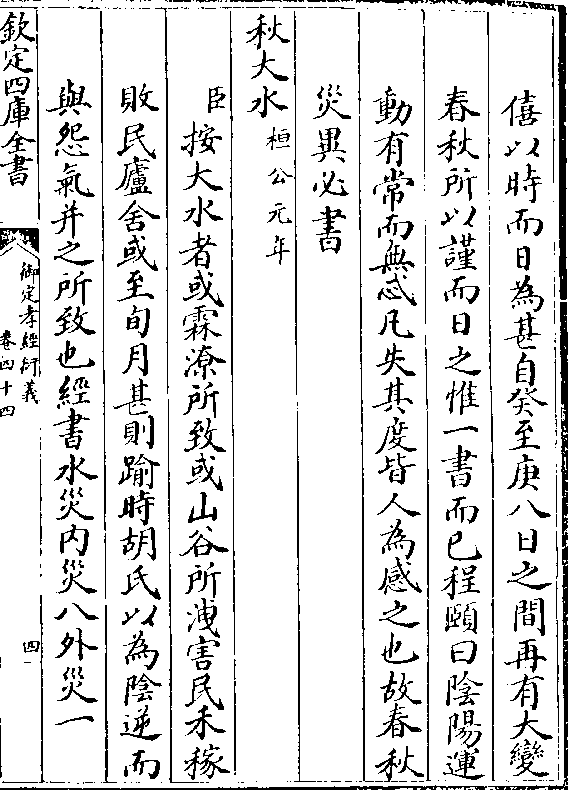 僖以時而日為甚自癸至庚八日之間再有大變
春秋所以謹而日之惟一書而已程頤曰陰陽運
動有常而無忒凡失其度皆人為感之也故春秋
災異必書
秋大水桓公元年
臣按大水者或霖潦所致或山谷所洩害民禾稼
敗民廬舍或至旬月甚則踰時胡氏以為陰逆而
與怨氣并之所致也經書水災内災八外災一
欽定四庫全書
御定孝經衍義
卷四十四
四